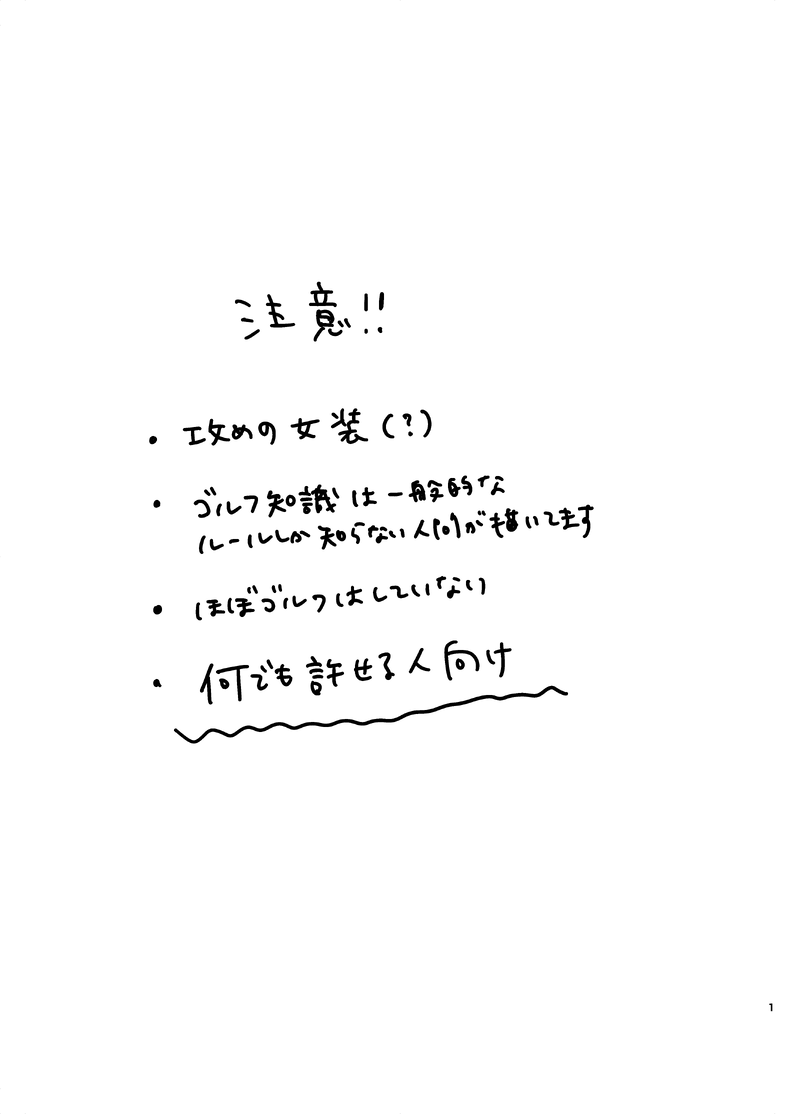 注意!!
・攻めの女装(?)
・ゴルフ知識は一般的な
ルールしか知らない人間が描いてます
・ほぼゴルフはしていない
・何でも許せる人向け
1